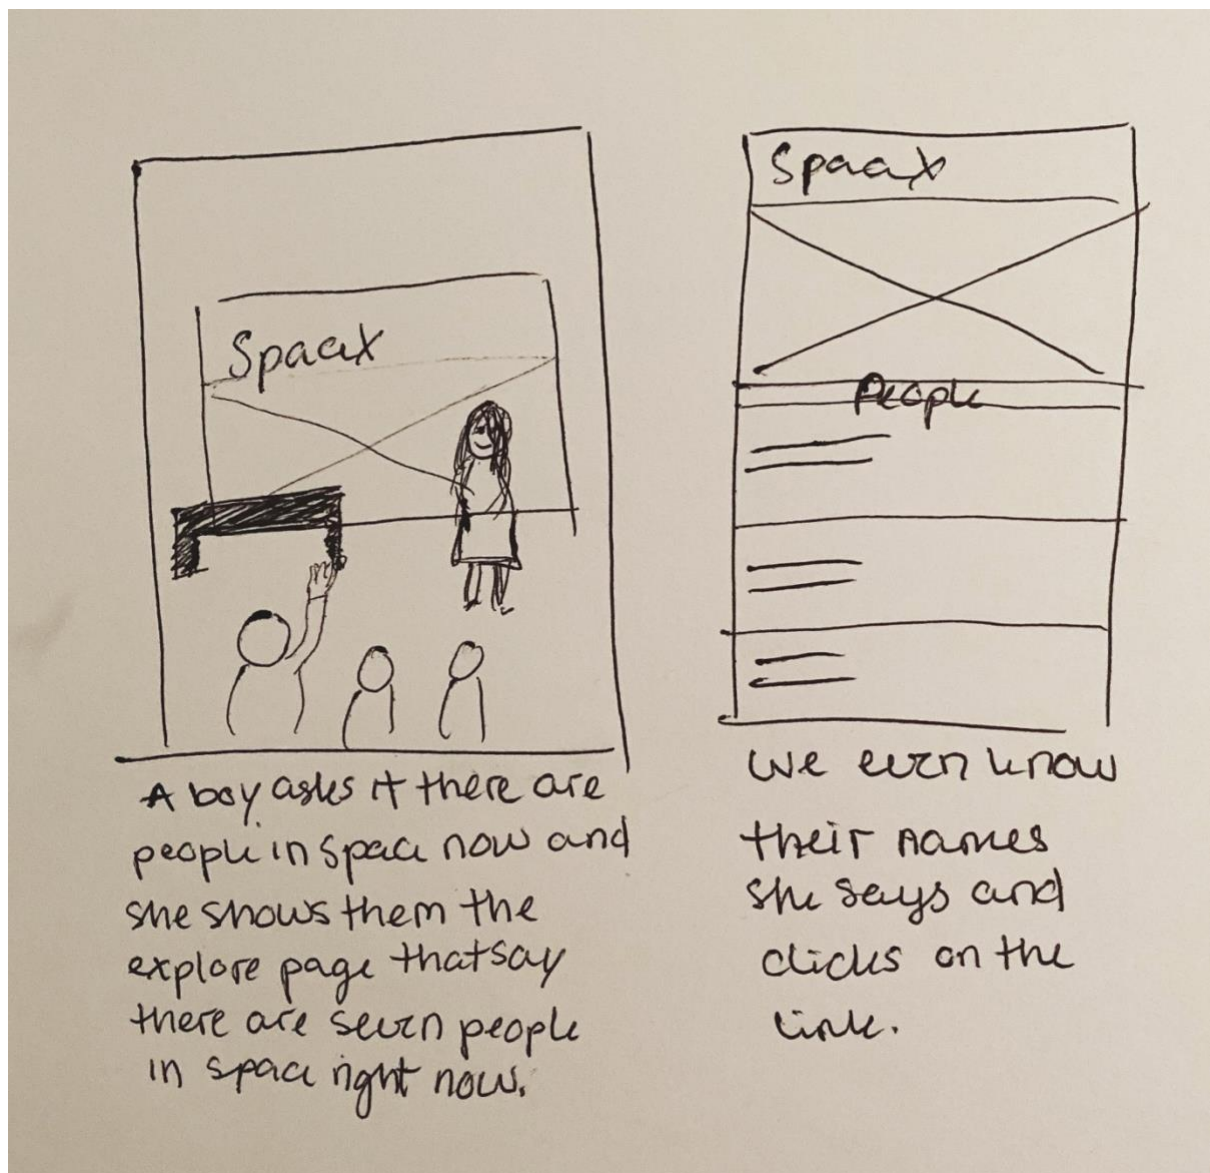 SpaceX
A boy asks if there are
people in space now and
she shows them the
explore page that say
there are seven people
in space right now.
SpaceX
People
we even know
their names
she says and
clicks on the
link.